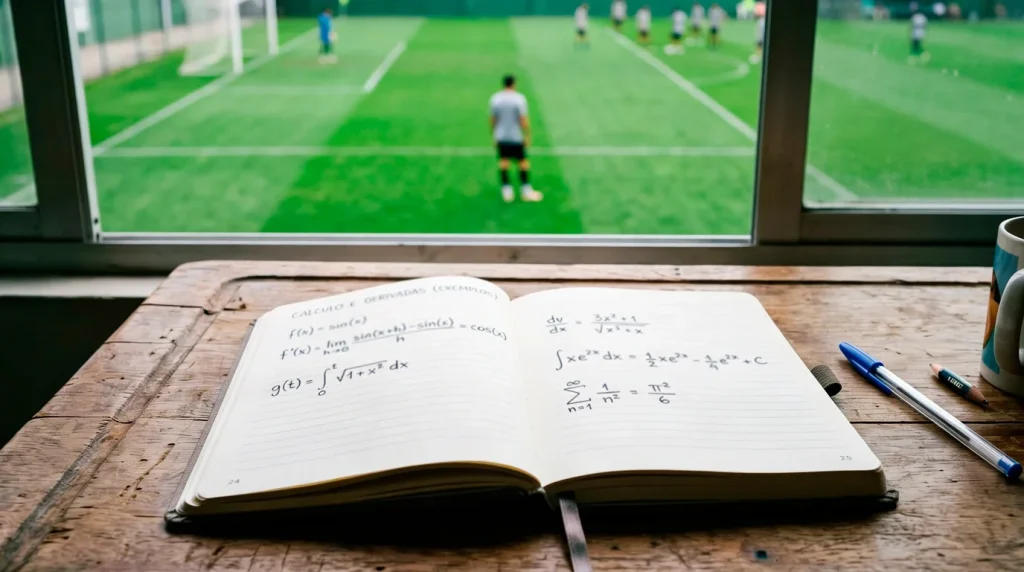 CALCULO E DERIVADAS (EXEMPLOS)
f(x) = sin(x)
f'(x) = lim h→0 sin(x+h) - sin(x) / h = cos(x)
g(t) = ∫₀ᵗ √1+x² dx
24
dy/dx = 3x²+1 / √x³+x
∫xe²ˣ dx = 1/2 xe²ˣ - 1/4 e²ˣ + C
∞ Σ n=1 1/n² = π²/6
25